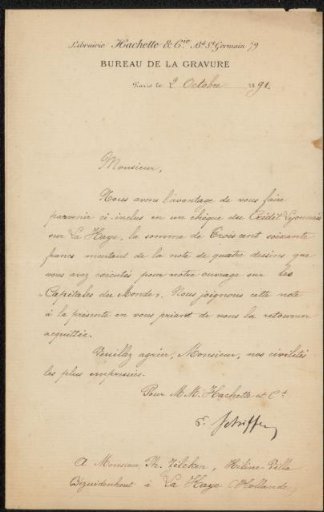 Librairie Hachette & Cie Bd St Germain 79
BUREAU DE LA GRAVURE
Paris le 2 Octobre 1891
Monsieur,
Nous avons l'avantage de vous faire
parvenir ci-inclus en un chèque du Crédit Lyonnais
sur La Haye, la somme de Trois cent soixante
francs montant de la note de quatre dessins que
vous avez exécutés pour notre ouvrage sur les
«Capitales du Monde». Nous joignons cette note
à la présente en vous priant de nous la retourner
acquittée.
Veuillez agréer, Monsieur, nos civilités
les plus empressées.
Pour M.M. Hachette et Cie
A Monsieur Ph. Zilcken, Hélène-Villa
Bezuidenhout à La Haye (Hollande)